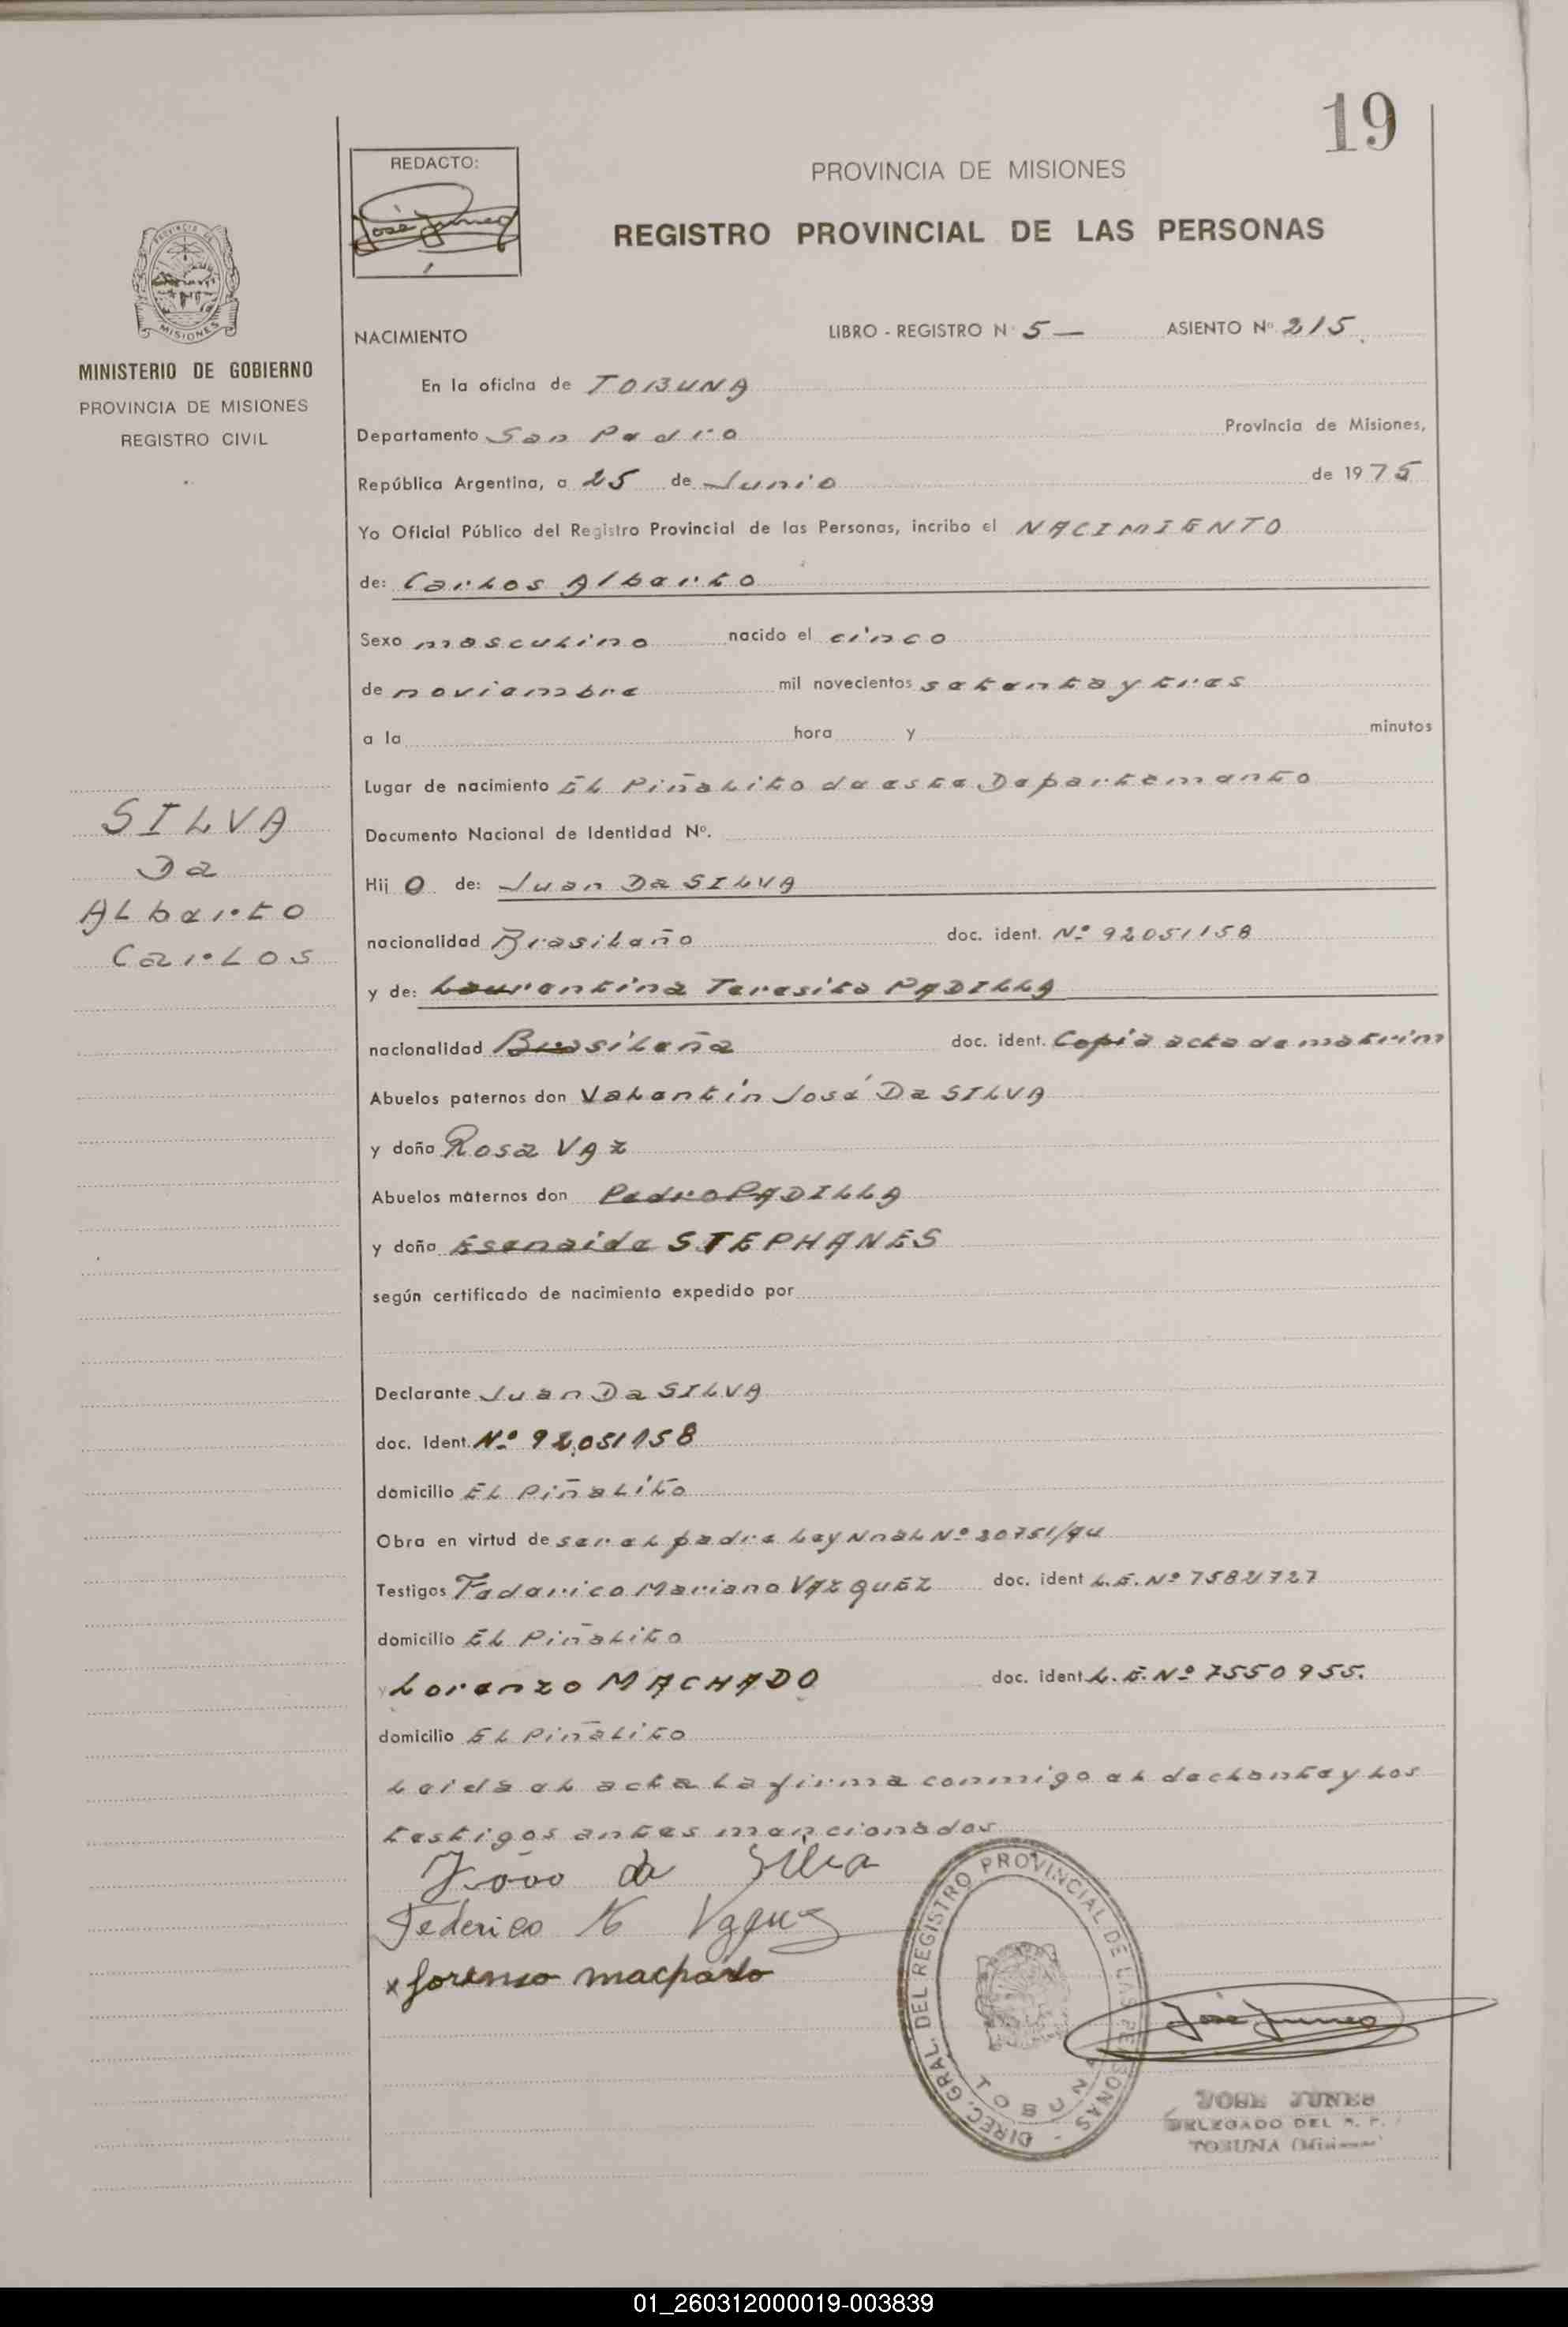 19
REDACTO:
José Junes
PROVINCIA DE MISIONES
REGISTRO PROVINCIAL DE LAS PERSONAS
PROVINCIA DE
MISIONES
MINISTERIO DE GOBIERNO
PROVINCIA DE MISIONES
REGISTRO CIVIL
NACIMIENTO LIBRO - REGISTRO Nº 5 — ASIENTO Nº 215
En la oficina de TOBUNA
Departamento San Pedro Provincia de Misiones,
República Argentina, a 25 de Junio de 1975
Yo Oficial Público del Registro Provincial de las Personas, incribo el NACIMIENTO
de: Carlos Alberto
Sexo masculino nacido el cinco
de noviembre mil novecientos setenta y tres
a la hora y minutos
Lugar de nacimiento El Piñalito de este Departemento
Documento Nacional de Identidad Nº.
Hij o de: Juan Da SILVA
nacionalidad Brasileño doc. ident. Nº 92051158
y de: Laurentina Teresita PADILLA
nacionalidad Brasileña doc. ident. Copia acta de matrim
Abuelos paternos don Valentín José Da SILVA
y doña Rosa VAZ
Abuelos maternos don Pedro PADILLA
y doña Esenaida STEPHANES
según certificado de nacimiento expedido por
Declarante Juan Da SILVA
doc. Ident. Nº 92,051158
domicilio El Piñalito
Obra en virtud de ser el padre Ley Nnal Nº 20751/74
Testigos Federico Mariano VAZQUEZ doc. ident L.E. Nº 7582727
domicilio El Piñalito
y Lorenzo MACHADO doc. ident L.E. Nº 7550955.
domicilio El Piñalito
Leida el acta la firma conmigo el declante y los
testigos antes mencionados
SILVA
Da
Alberto
Carlos
João da Silva
Federico M Vazquez
x Lorenso machado
DIREC. GRAL. DEL REGISTRO PROVINCIAL DE LAS PERSONAS -
TOBUNA
José Junes
JOSE JUNES
DELEGADO DEL R. P.
TOBUNA (Misiones)
01_260312000019-003839